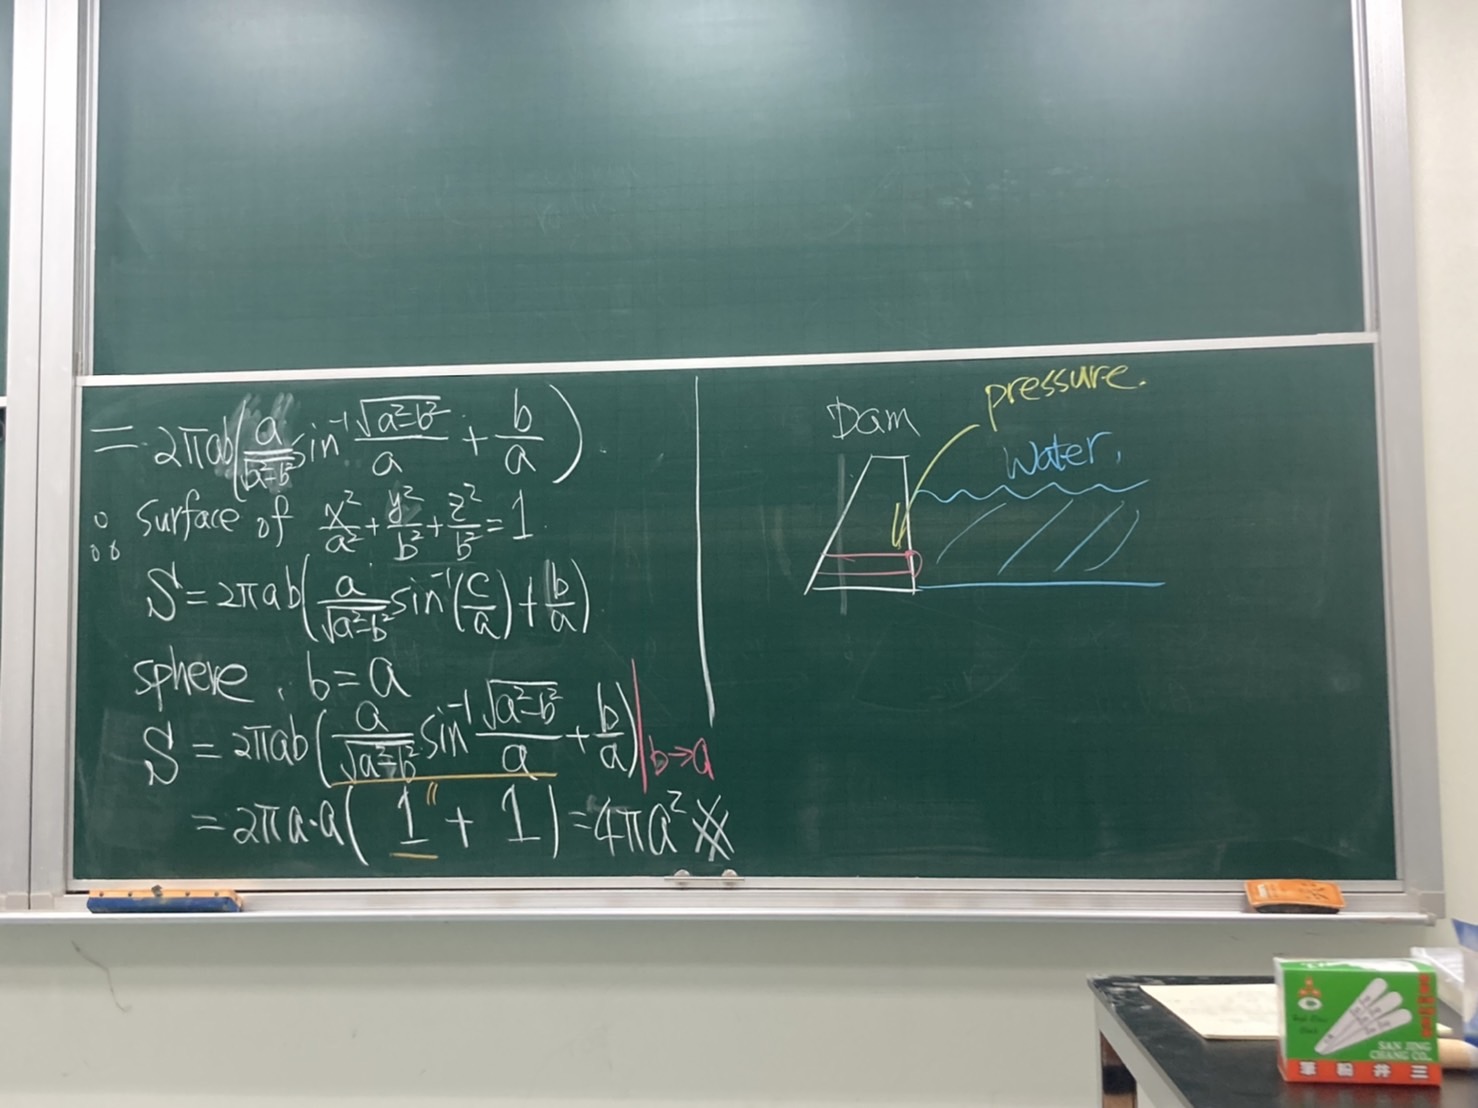 = 2πab(a/√(a²-b²) sin⁻¹ √(a²-b²)/a + b/a)
∴ surface of x²/a² + y²/b² + z²/b² = 1
S = 2πab(a/√(a²-b²) sin⁻¹(c/a) + b/a)
sphere, b = a
S = 2πab(a/√(a²-b²) sin⁻¹ √(a²-b²)/a + b/a)|b→a
= 2πa·a(1 + 1) = 4πa² ※
pressure.
Dam
Water.
SAN JING
CHANG CO.,
筆粉井三